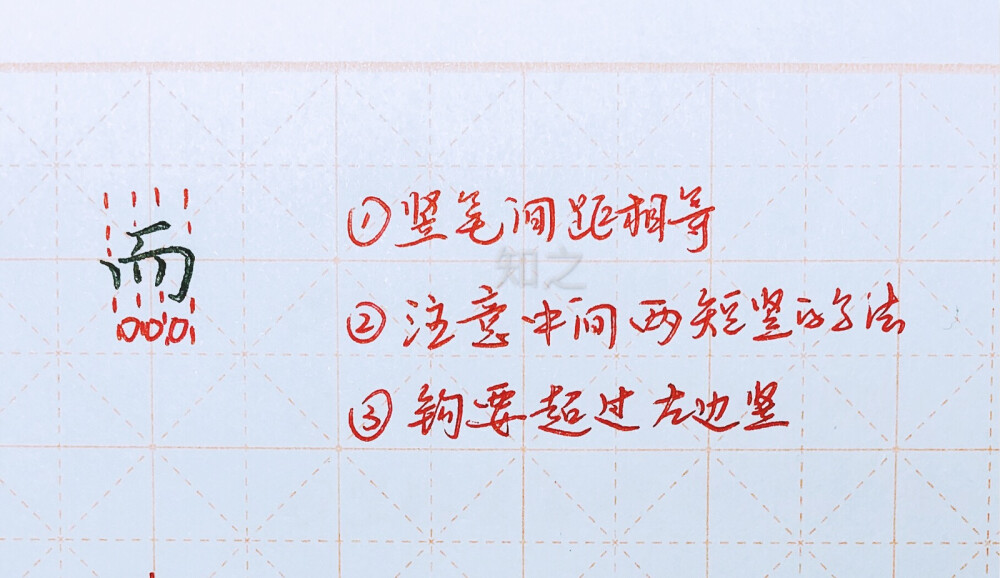 而
①竖笔间距相等
知之
②注意中间两短竖的写法
③钩要超过左边竖